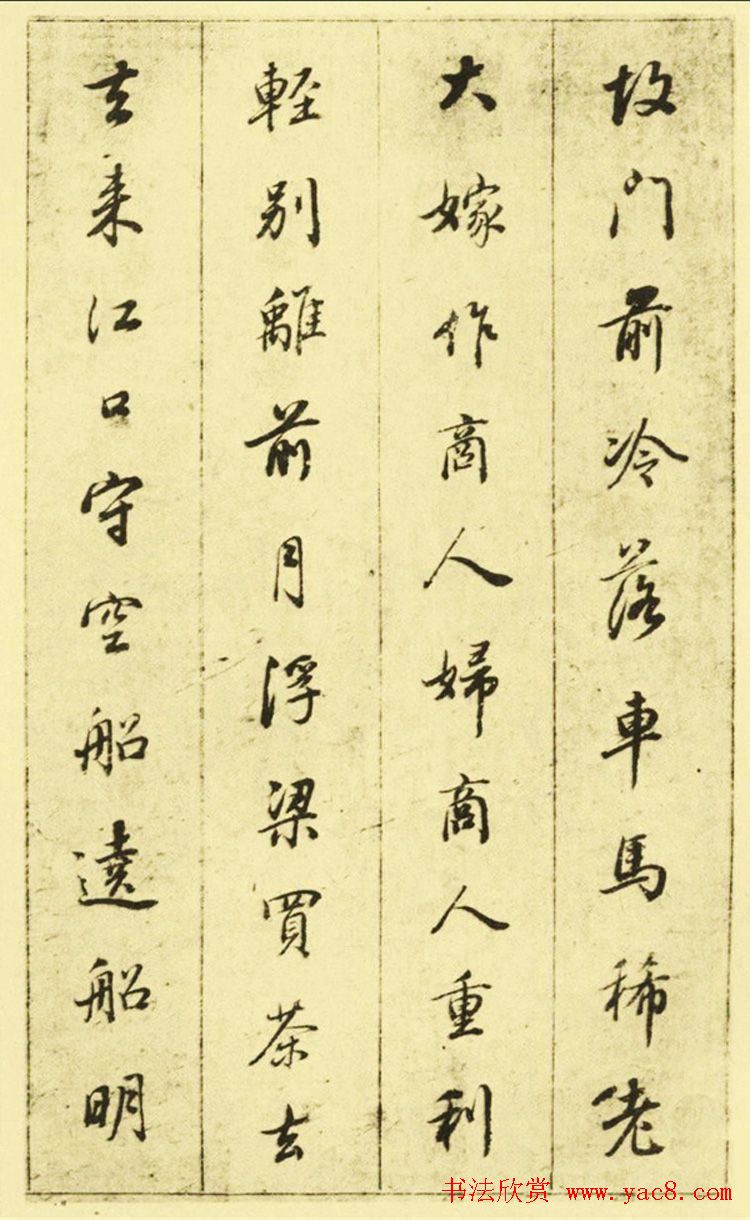 故门前冷落車馬稀老
大嫁作商人婦商人重利
輕别離前月浮梁買茶去
去来江口守空船遶船明
书法欣赏 www.yac8.com